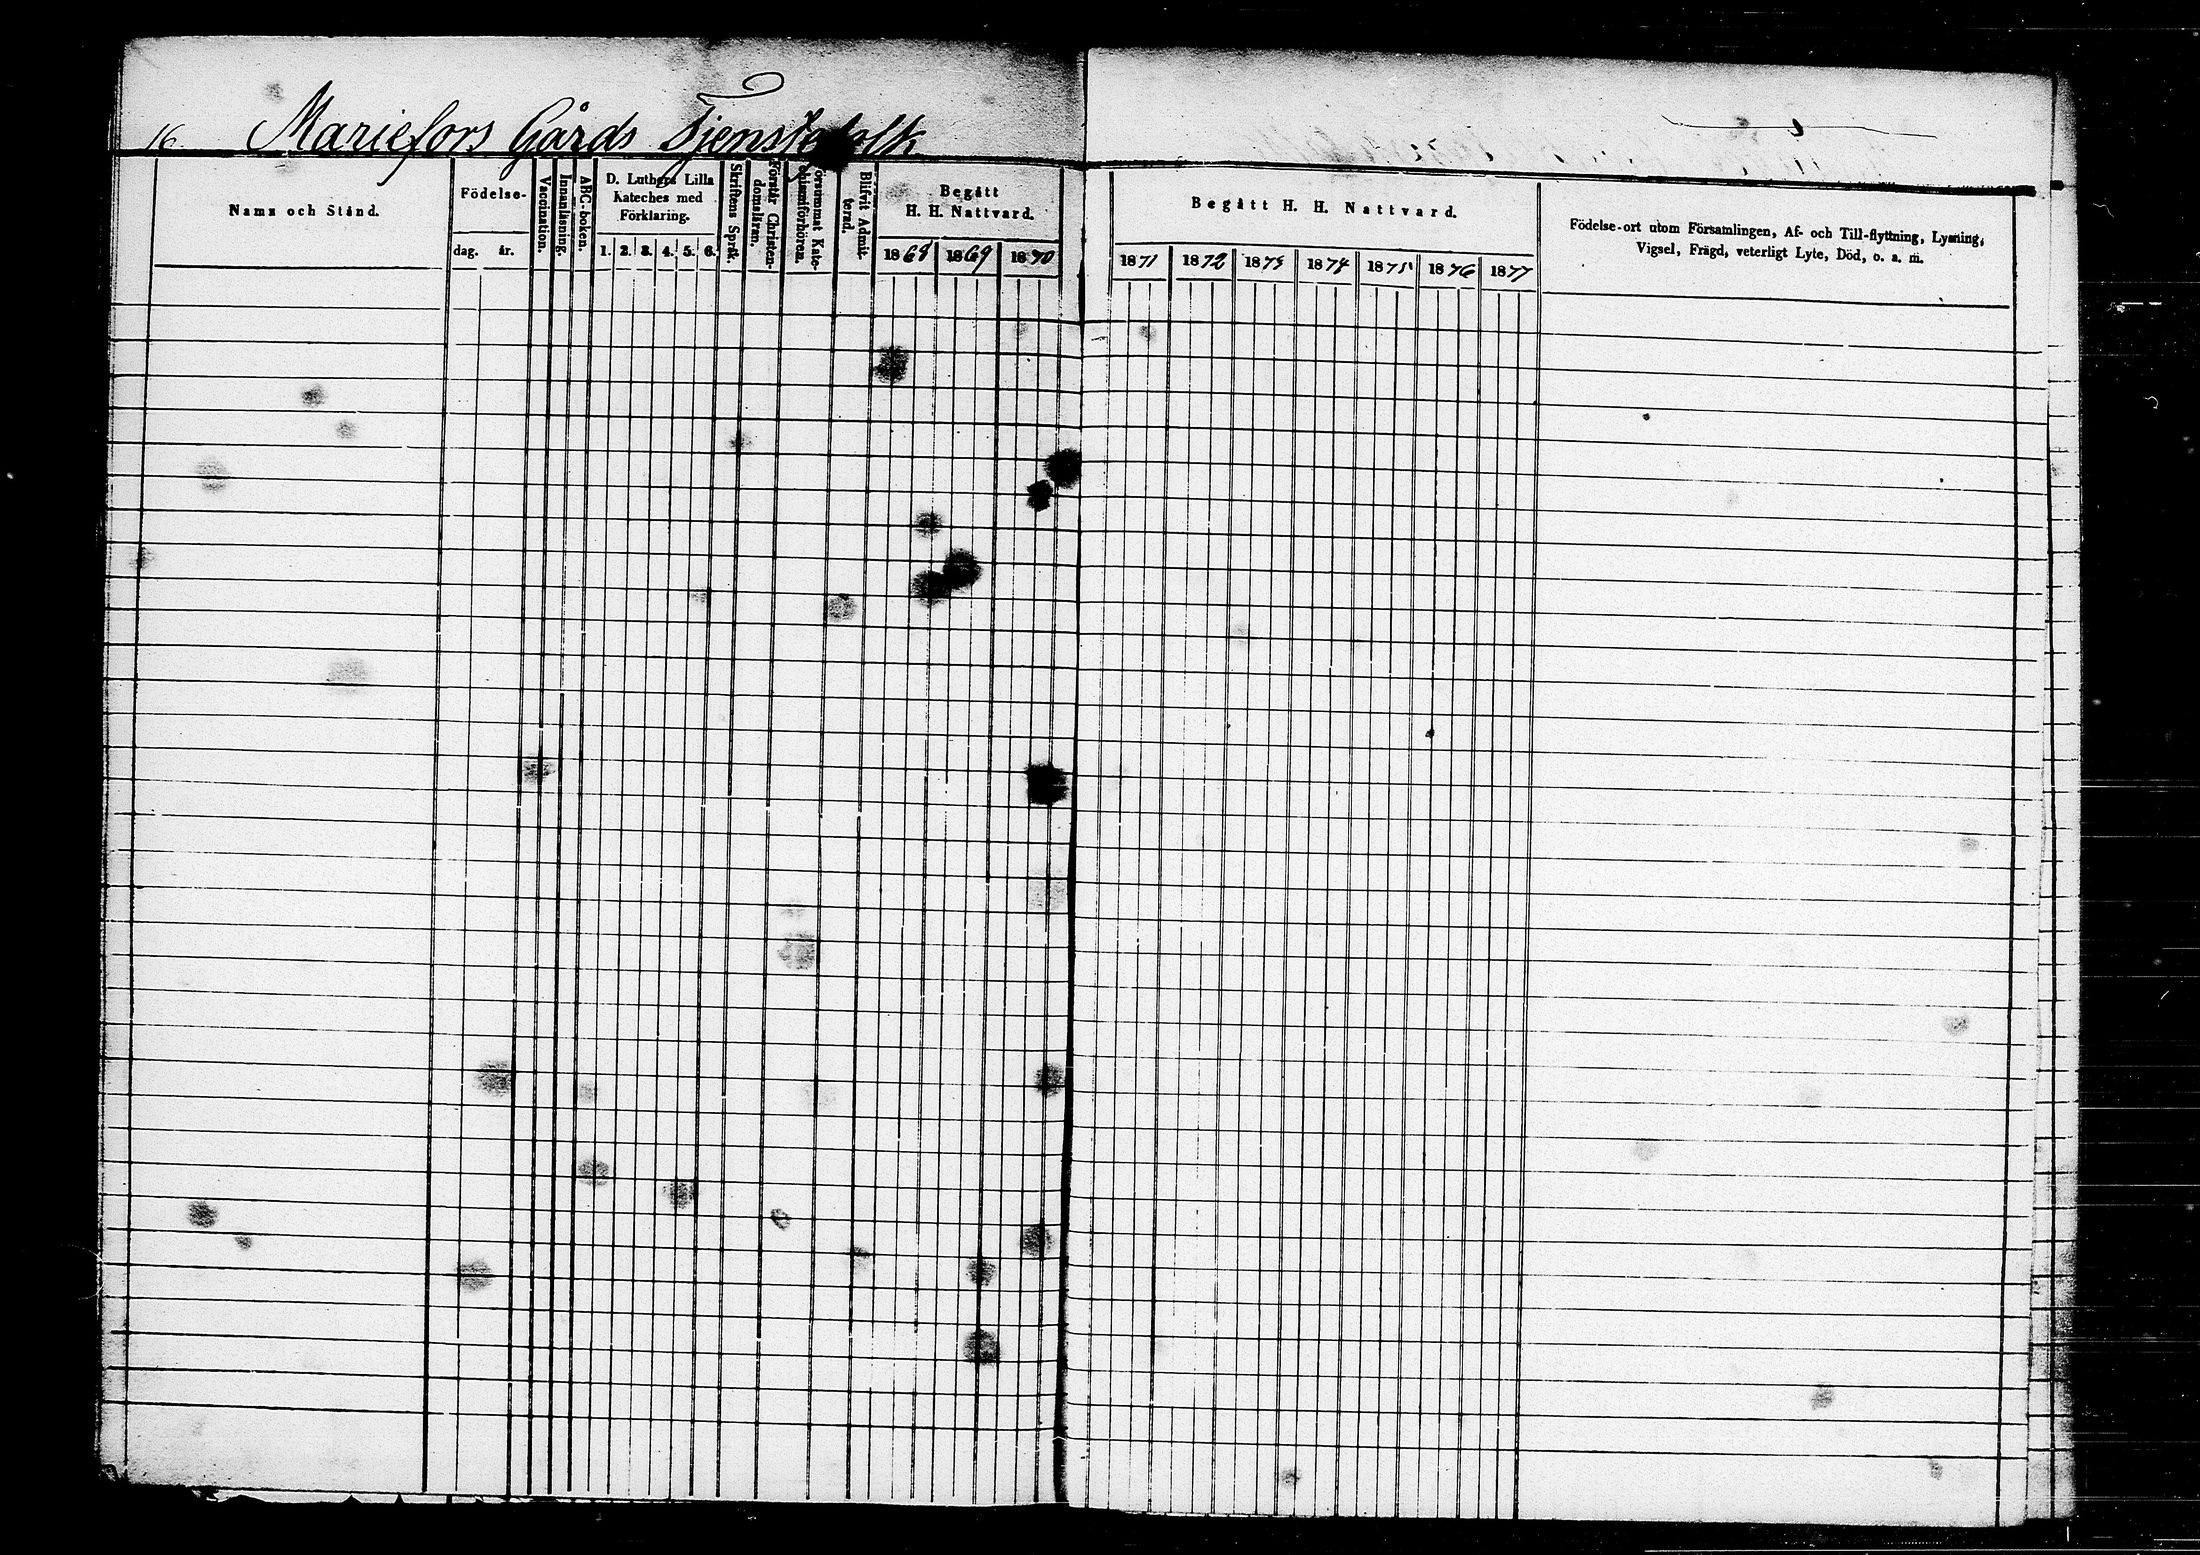 16. Mariefors Gårds Tjenstefolk
Namn och Stånd.
Födelse-
dag. år.
Vaccination.
Innanläsning.
ABC-boken.
D. Luthers Lilla
Kateches med
Förklaring.
1. 2. 3. 4. 5. 6.
Skriftens Språk.
Förstår Christen-
domsläran.
Försummat Kate-
chismiförhören.
Blifvit Admit-
terad.
Begått
H. H. Nattvard.
1868 1869 1870
Begått H. H. Nattvard.
1871 1872 1873 1874 1875 1876 1877
Födelse-ort utom Församlingen, Af- och Till-flyttning, Lysning,
Vigsel, Frägd, veterligt Lyte, Död, o. a. m.